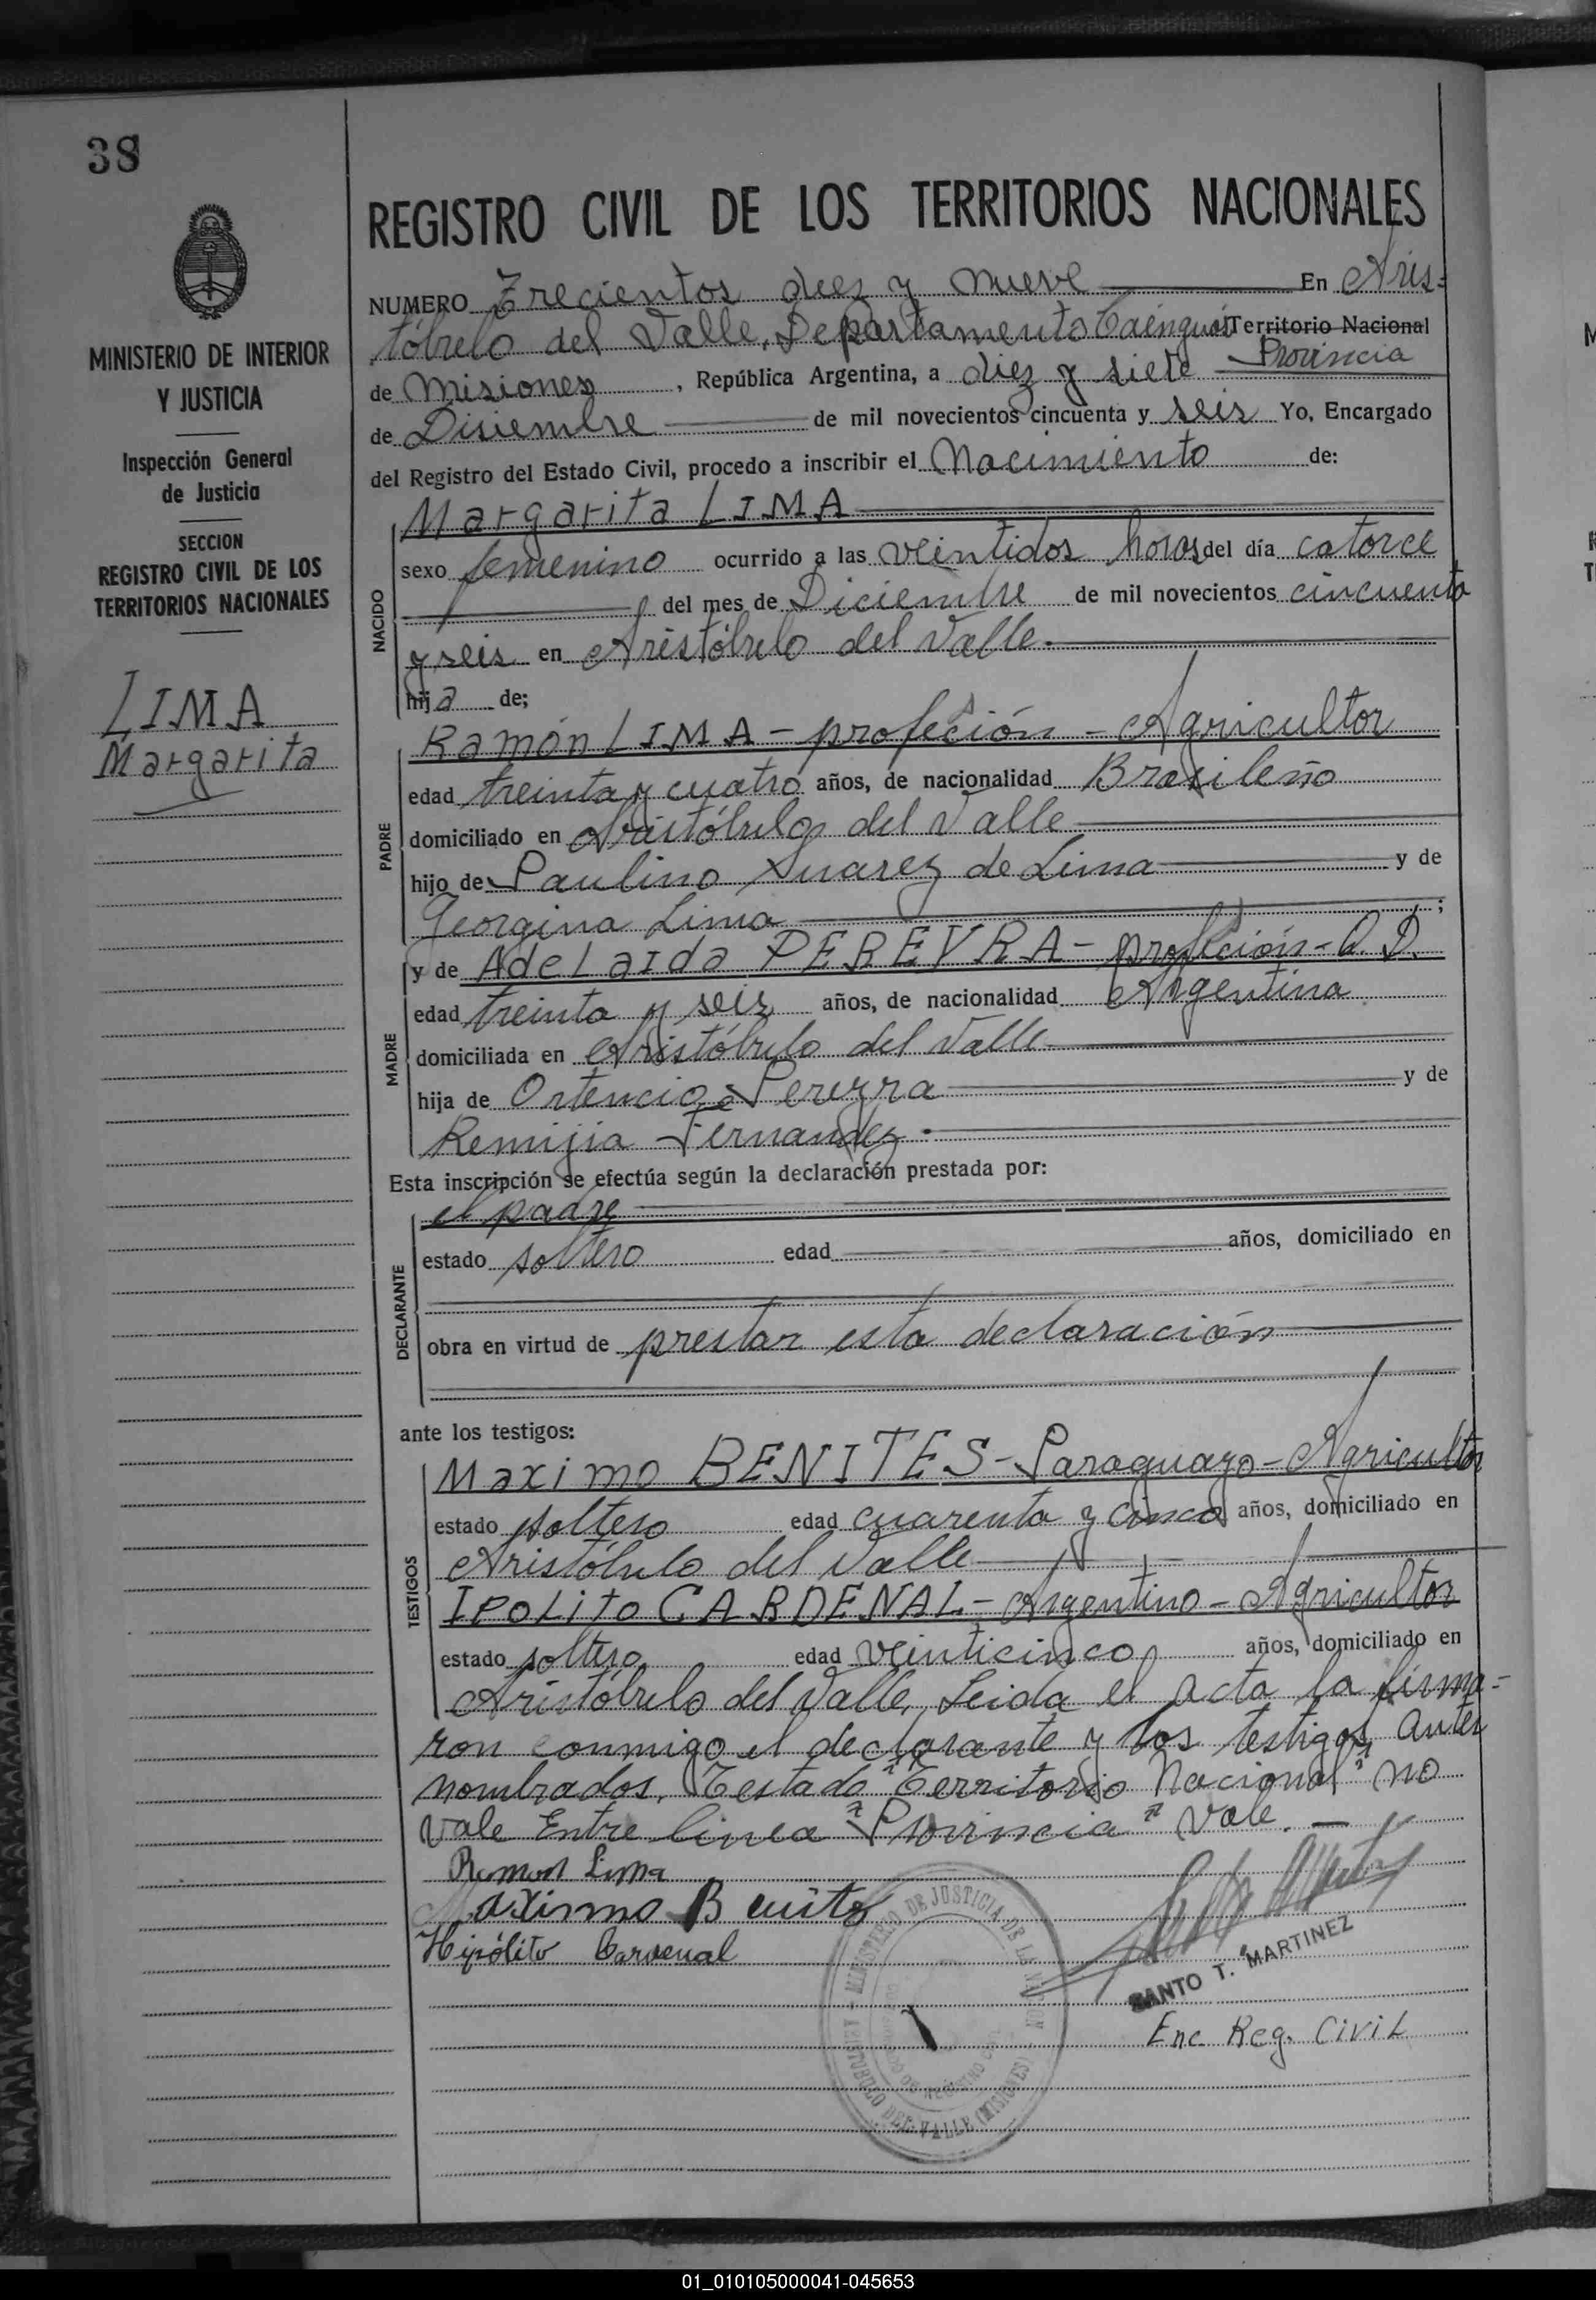 38
MINISTERIO DE INTERIOR
Y JUSTICIA
Inspección General
de Justicia
SECCION
REGISTRO CIVIL DE LOS
TERRITORIOS NACIONALES
LIMA
Margarita
REGISTRO CIVIL DE LOS TERRITORIOS NACIONALES
NUMERO Trecientos diez y nueve En Aris=
tóbulo del Valle, Departamento Cainguás Territorio Nacional
Provincia
de Misiones, República Argentina, a diez y siete
de Disiembre de mil novecientos cincuenta y seis Yo, Encargado
del Registro del Estado Civil, procedo a inscribir el Nacimiento de:
NACIDO
Margarita LIMA
sexo femenino ocurrido a las veintidos horas del día catorce
del mes de Diciembre de mil novecientos cincuenta
y seis en Aristóbulo del Valle.
hija de;
PADRE
Ramón LIMA - profeción - Agricultor
edad treinta y cuatro años, de nacionalidad Brasileño
domiciliado en Aristóbulo del Valle
hijo de Paulino Suarez de Lima y de
Georgina Lima ;
MADRE
y de Adelaida PEREYRA - profeción - Q. D.
edad treinta y seis años, de nacionalidad Argentina.
domiciliada en Aristóbulo del Valle
hija de Ortencio Pereyra y de
Remijia Fernandez.
Esta inscripción se efectúa según la declaración prestada por:
DECLARANTE
el padre
estado soltero edad años, domiciliado en
obra en virtud de prestar esta declaración
ante los testigos:
TESTIGOS
Maximo BENITES - Paraguayo - Agricultor
estado soltero edad cuarenta y cinco años, domiciliado en
Aristóbulo del Valle
IPOLITO CARDENAL - Argentino - Agricultor
estado soltero edad veinticinco años, domiciliado en
Aristóbulo del Valle, Leida el acta la firma=
ron conmigo el declarante y los testigos antes
nombrados. Testado "Territorio Nacional" no
vale Entre linea "Provincia" vale. —
Ramon Lima
Maximo Benites
Hipólito Cardenal
MINISTERIO DE JUSTICIA DE LA NACION
ARISTOBULO DEL VALLE (MISIONES)
SANTO T. MARTINEZ
Enc. Reg. Civil
01_010105000041-045653